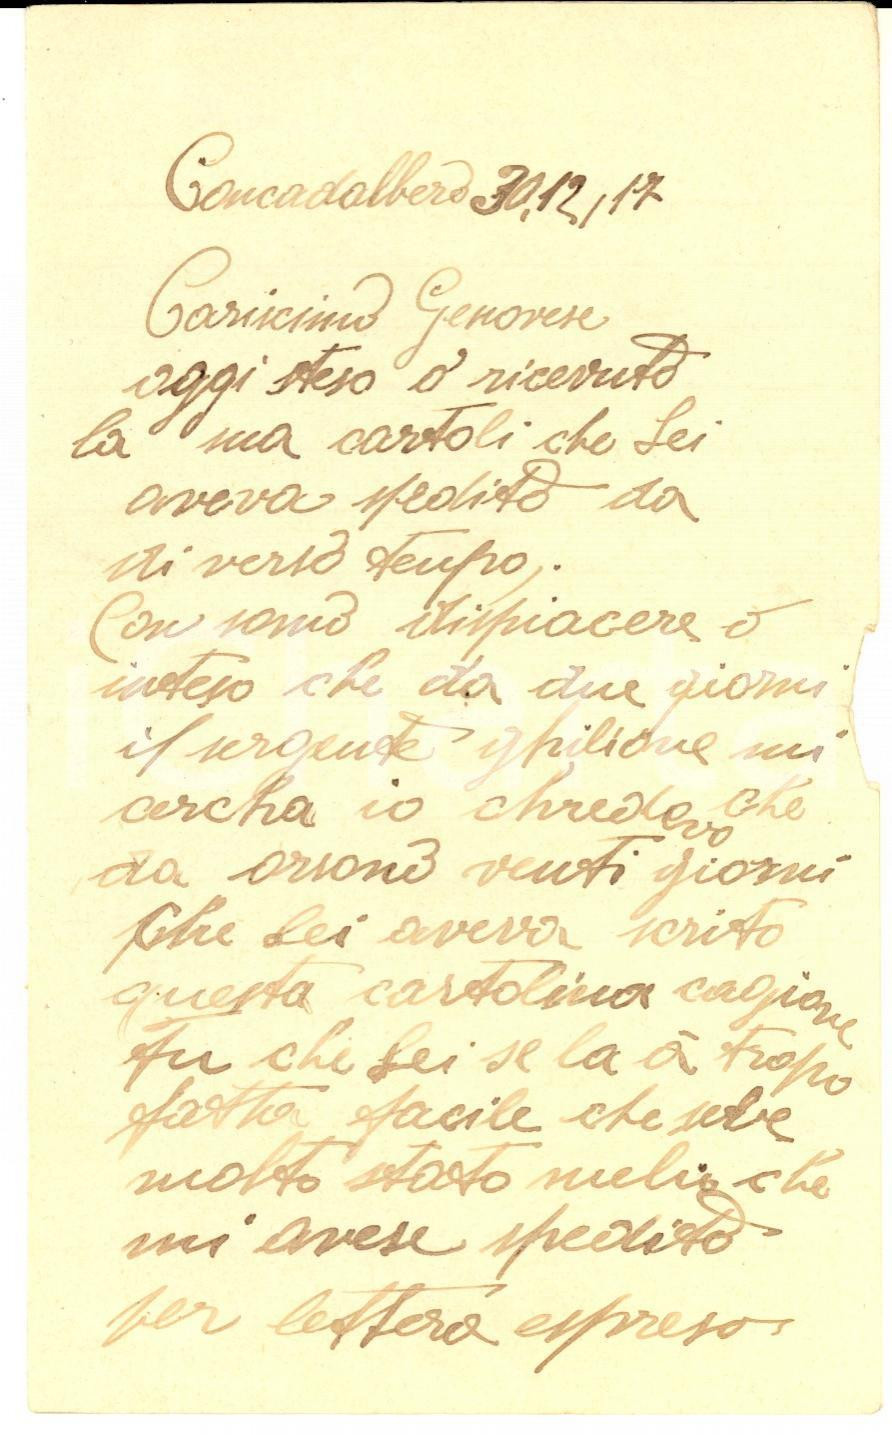 Concadalbero 30,12,17
Carisimo Genovese
oggi steso o' ricevuto
la sua cartoli che Lei
aveva spedito da
diverso tempo.
Con somo dispiacere o
inteso che da due giorni
il sergente ghilione mi
cercha io chredevo che
da orsono venti giorni
che Lei aveva scrito
questa cartolina cagione
fu che Lei se la à tropo
fatta facile che sebe
molto stato melio che
mi avese spedito
per lettera espreso